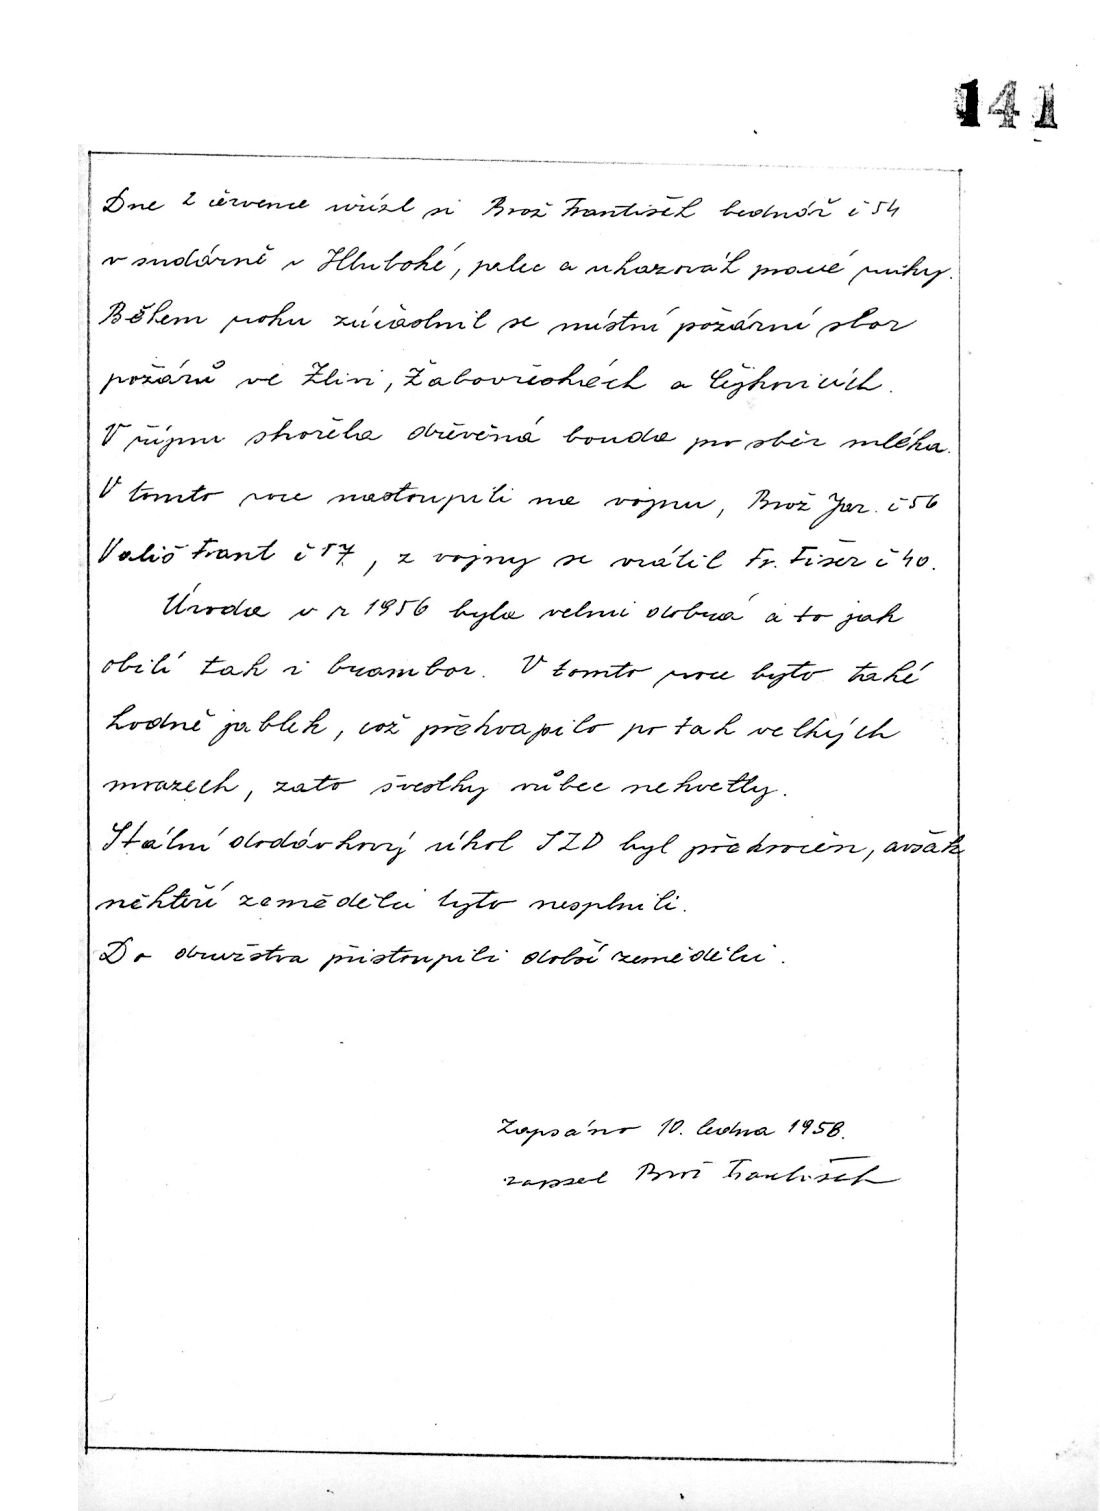 141
Dne 2 července uřízl si Brož František bednář č 54
v sudárně v Hluboké, palec a ukazovák pravé ruky.
Během roku zúčastnil se místní požární sbor
požárů ve Zlivi, Žabovřeskéch a Čejkovicích.
V říjnu shořela dřevěná bouda pro sběr mléka.
V tomto roce nastoupili na vojnu, Brož Jar. č 56
Vališ Frant č 57, z vojny se vrátil Fr. Fišer č 40.
Úroda v r 1956 byla velmi dobrá a to jak
obilí tak i brambor. V tomto roce bylo také
hodně jablek, což překvapilo po tak velkých
mrazech, zato švestky vůbec nekvetly.
Stální dodávkový úkol JZD byl překročen, avšak
někteří zemědělci tyto nesplnili.
Do družstva přistoupili další zemědělci.
Zapsáno 10. ledna 1958.
zapsal Brož František